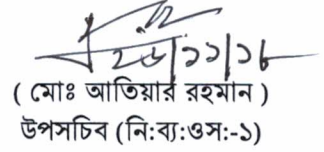 ২৬/১১/১৮
( মোঃ আতিয়ার রহমান )
উপসচিব (নি:ব্য:ওস:-১)